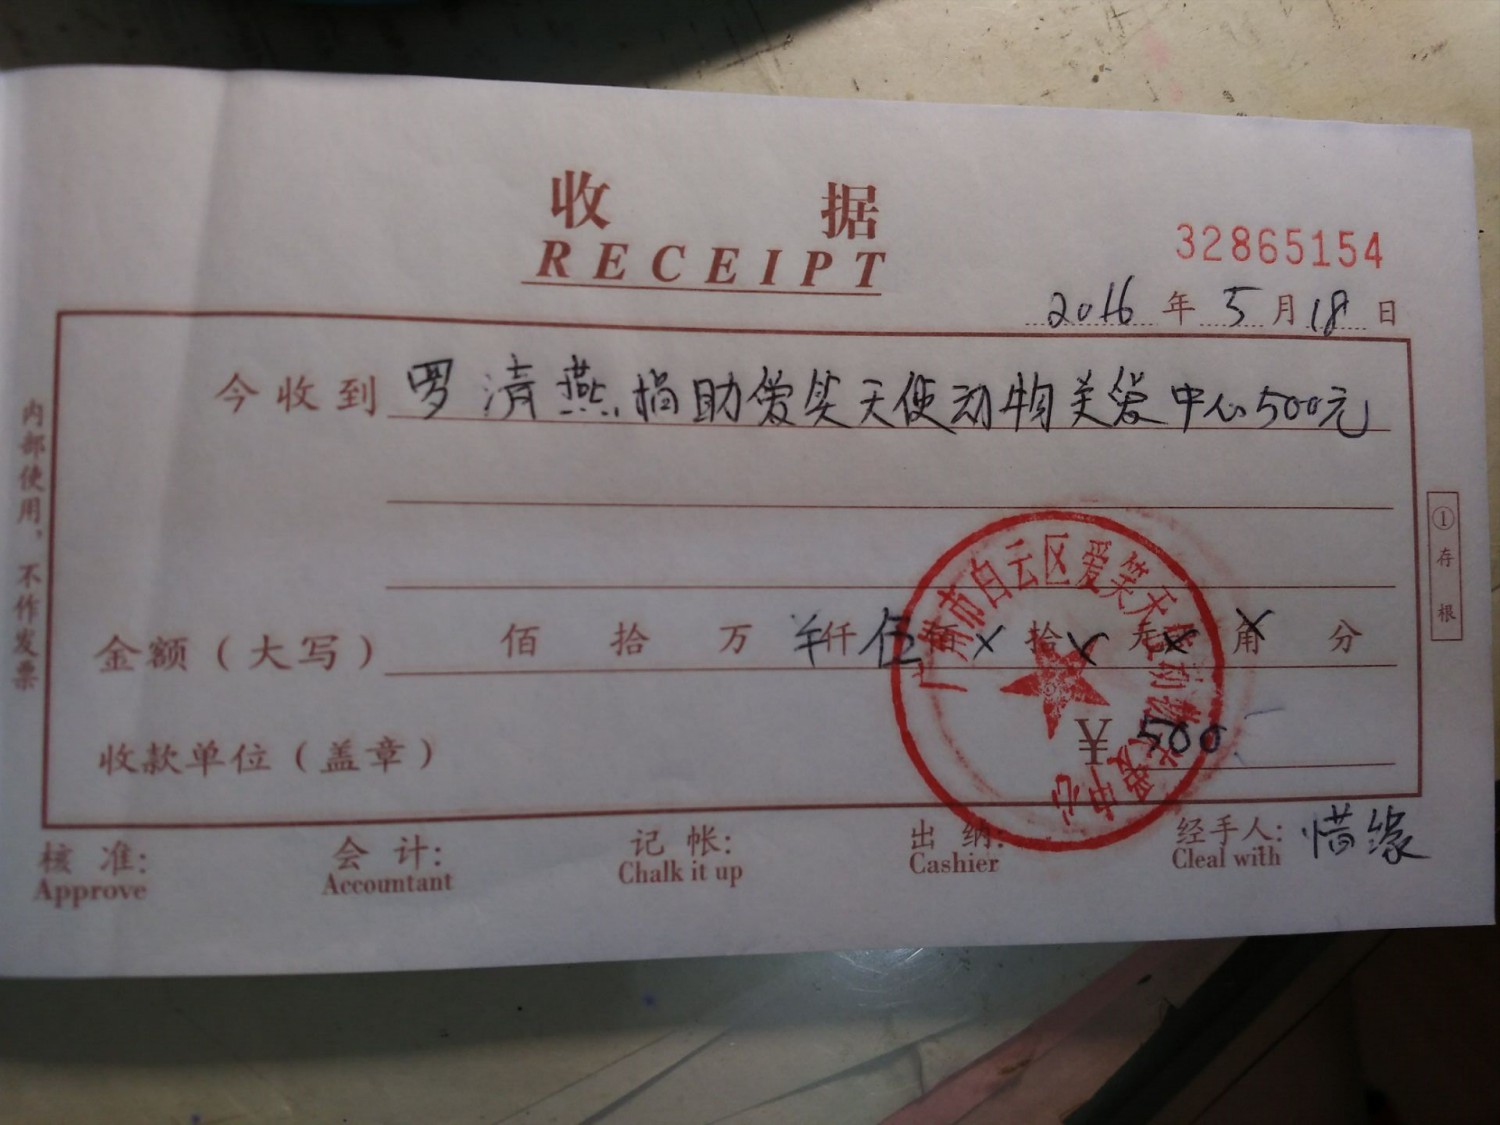 收 据
RECEIPT
32865154
2016 年 5 月 18 日
今收到 罗清燕捐助爱笑天使动物关爱中心500元
金额（大写） 佰 拾 万 ¥仟 伍佰 X 拾 X 元 X 角 X 分
¥ 500
收款单位（盖章）
广州市白云区爱笑天使动物关爱中心
核 准:
Approve
会 计:
Accountant
记 帐:
Chalk it up
出 纳:
Cashier
经手人: 惜缘
Cleal with
内部使用，不作发票
①存根